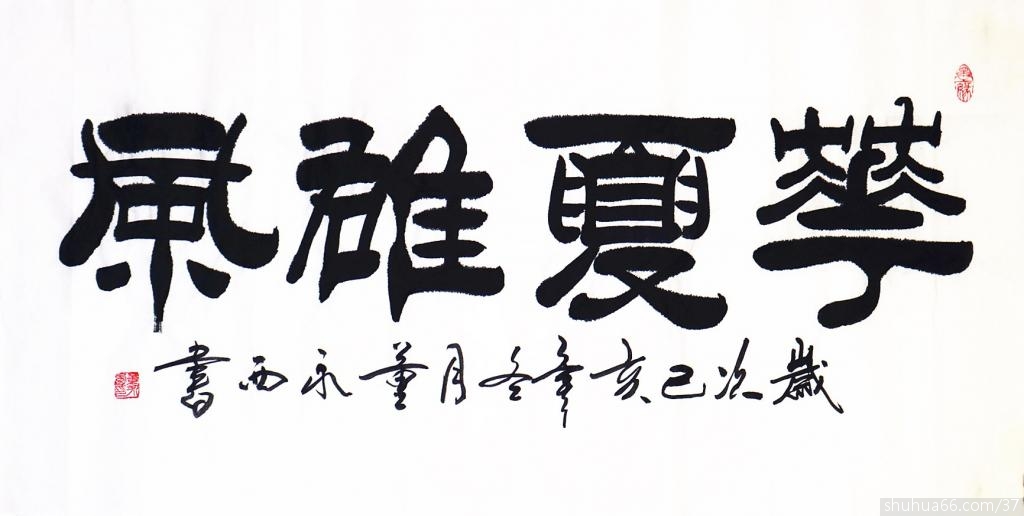 華夏雄風
歲次己亥年冬月董永西書
shuhua66.com/37